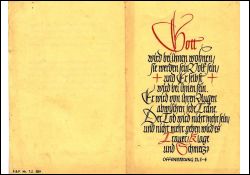 Gott
wird bei ihnen wohnen,
sie werden sein Volk sein,
und Er selbst
wird bei ihnen sein.
Er wird von ihren Augen
abwischen jede Träne.
Der Tod wird nicht mehr sein
und nicht mehr geben wird es
Trauer, Klage
und Schmerz
OFFENBARUNG 21,3-4